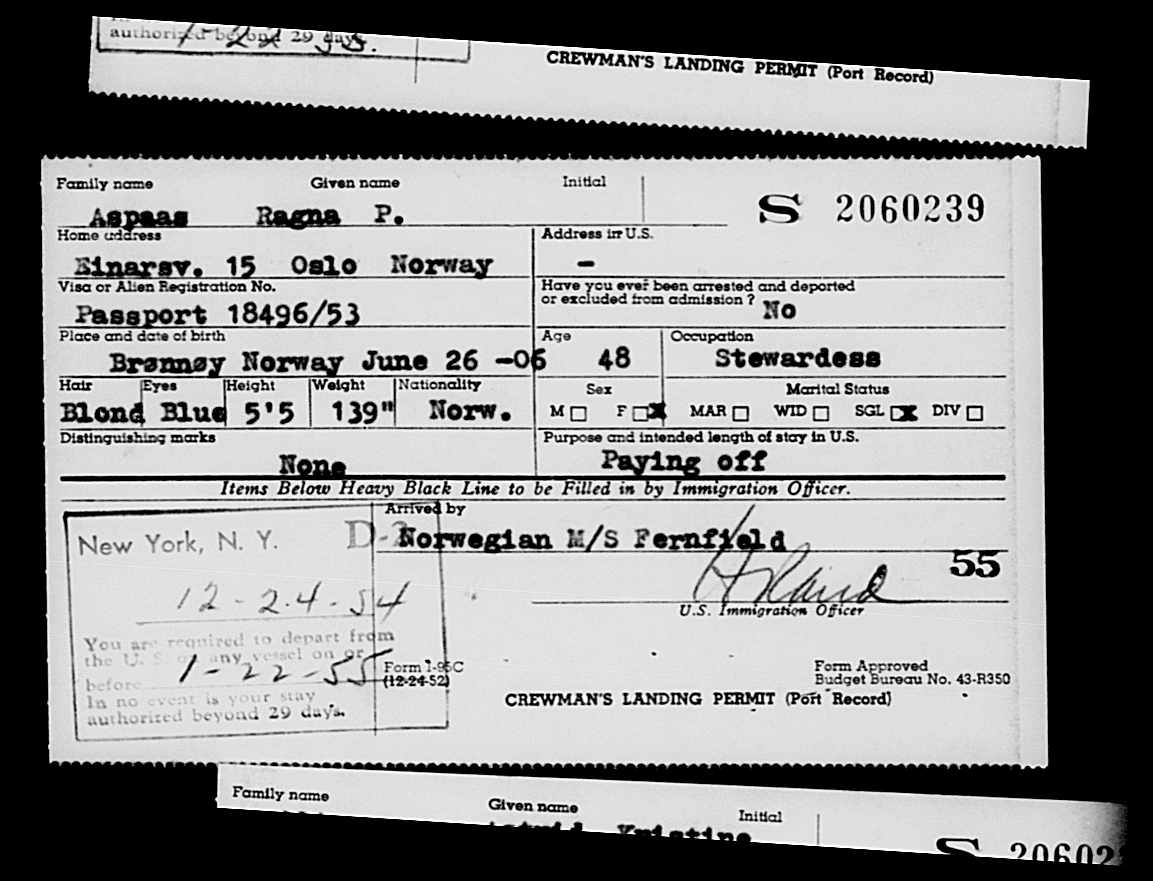 authorized beyond 29 days.
1-22-55.
CREWMAN'S LANDING PERMIT (Port Record)
Family name Given name Initial
Aspaas Ragna P.
S 2060239
Home address Address in U.S.
Einarsv. 15 Oslo Norway -
Visa or Alien Registration No. Have you ever been arrested and deported
or excluded from admission?
Passport 18496/53 No
Place and date of birth Age Occupation
Brønnøy Norway June 26 -06 48 Stewardess
Hair Eyes Height Weight Nationality Sex Marital Status
Blond Blue 5'5 139" Norw. M F X MAR WID SGL X DIV
Distinguishing marks Purpose and intended length of stay in U.S.
None Paying off
Items Below Heavy Black Line to be Filled in by Immigration Officer.
Arrived by
New York, N. Y. D-2 Norwegian M/S Fernfield
55
12-24-54
U.S. Immigration Officer
You are required to depart from
the U. S. on any vessel on or
before 1-22-55
In no event is your stay
authorized beyond 29 days.
Form I-95C
(12-24-52)
Form Approved
Budget Bureau No. 43-R350
CREWMAN'S LANDING PERMIT (Port Record)
Family name Given name Initial
Kristine
S 20602